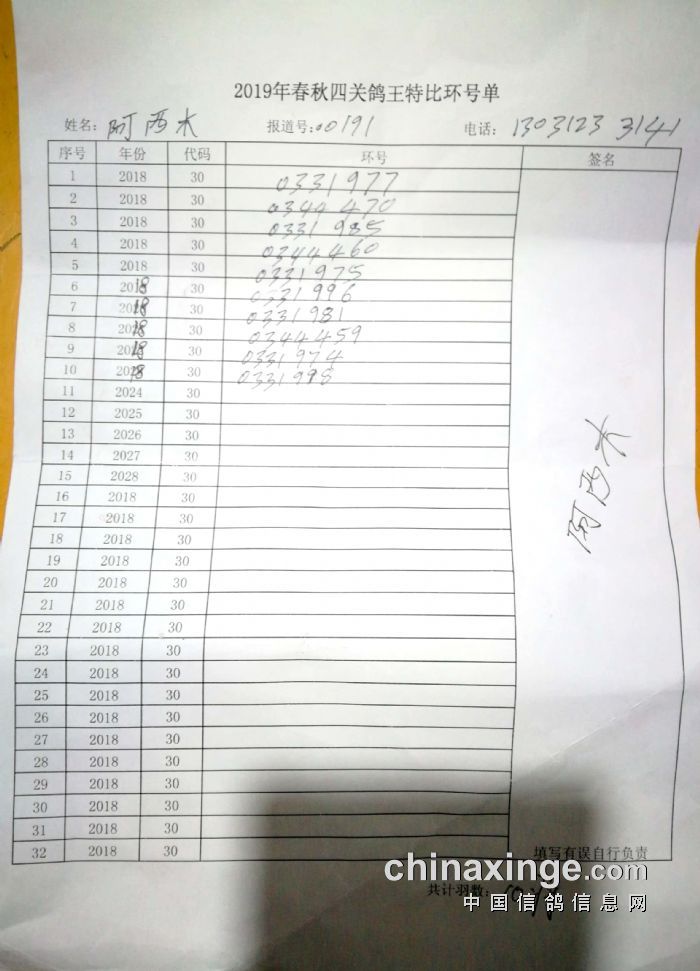 2019年春秋四关鸽王特比环号单
姓名: 阿西木 报道号: 00191 电话: 1303123 3141
序号 年份 代码 环号 签名
1 2018 30 0331977
2 2018 30 0344470
3 2018 30 0331985
4 2018 30 0344460
5 2018 30 0331975
6 2018 30 0331996
7 2018 30 0331981
8 2018 30 0344459
9 2018 30 0331974
10 2018 30 0331998
11 2024 30
12 2025 30
13 2026 30
14 2027 30
15 2028 30
16 2018 30
17 2018 30
18 2018 30
阿西木
19 2018 30
20 2018 30
21 2018 30
22 2018 30
23 2018 30
24 2018 30
25 2018 30
26 2018 30
27 2018 30
28 2018 30
29 2018 30
30 2018 30
31 2018 30
32 2018 30 填写有误自行负责
chinaxinge.com
共计羽数:
中国信鸽信息网